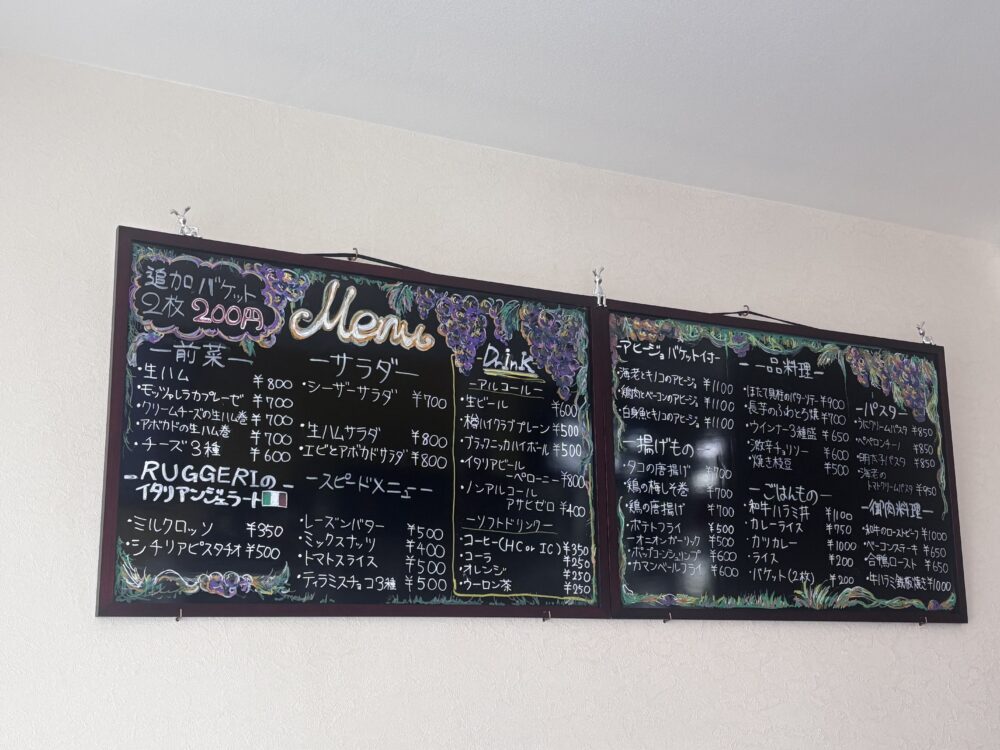 追加バケット
2枚 200円
Menu
ー前菜ー
・生ハム ¥800
・モッツァレラカプレーゼ ¥700
・クリームチーズの生ハム巻 ¥700
・アボカドの生ハム巻 ¥700
・チーズ3種 ¥600
-RUGGERIの
イタリアンジェラート-
・ミルクロッソ ¥350
・シチリアピスタチオ ¥500
ーサラダー
・シーザーサラダ ¥700
・生ハムサラダ ¥800
・エビとアボカドサラダ ¥800
ースピードメニューー
・レーズンバター ¥500
・ミックスナッツ ¥400
・トマトスライス ¥500
・ティラミスチョコ3種 ¥500
-Drink-
ーアルコールー
・生ビール ¥600
・樽ハイクラブプレーン ¥500
・ブラックニッカハイボール ¥500
・イタリアビール
ーペローニー ¥800
・ノンアルコール
アサヒゼロ ¥400
ーソフトドリンクー
・コーヒー(HC or IC) ¥350
・コーラ ¥250
・オレンジ ¥250
・ウーロン茶 ¥250
-アヒージョ バケット付-
・海老とキノコのアヒージョ ¥1100
・鶏肉とベーコンのアヒージョ ¥1100
・白身魚とキノコのアヒージョ ¥1100
ー揚げものー
・タコの唐揚げ ¥700
・鶏の梅しそ巻 ¥700
・鶏の唐揚げ ¥700
・ポテトフライ ¥500
ーオニオンガーリック ¥500
・ポップコーンシュリンプ ¥600
・カマンベールフライ ¥600
ー一品料理ー
・ほたて貝柱のバターソテー ¥900
・長芋のふわとろ焼 ¥700
・ウインナー3種盛 ¥650
・激辛チョリソー ¥600
・焼き枝豆 ¥500
ーごはんものー
・和牛ハラミ丼 ¥1100
・カレーライス ¥750
・カツカレー ¥1000
・ライス ¥200
・バケット(2枚) ¥200
ーパスター
・うにクリームパスタ ¥850
・ペペロンチーノ ¥850
・明太子パスタ ¥850
・海老の
トマトクリームパスタ ¥950
ー御肉料理ー
・和牛のローストビーフ ¥1000
・ベーコンステーキ ¥650
・合鴨ロースト ¥650
・牛ハラミ鉄板焼き ¥1000